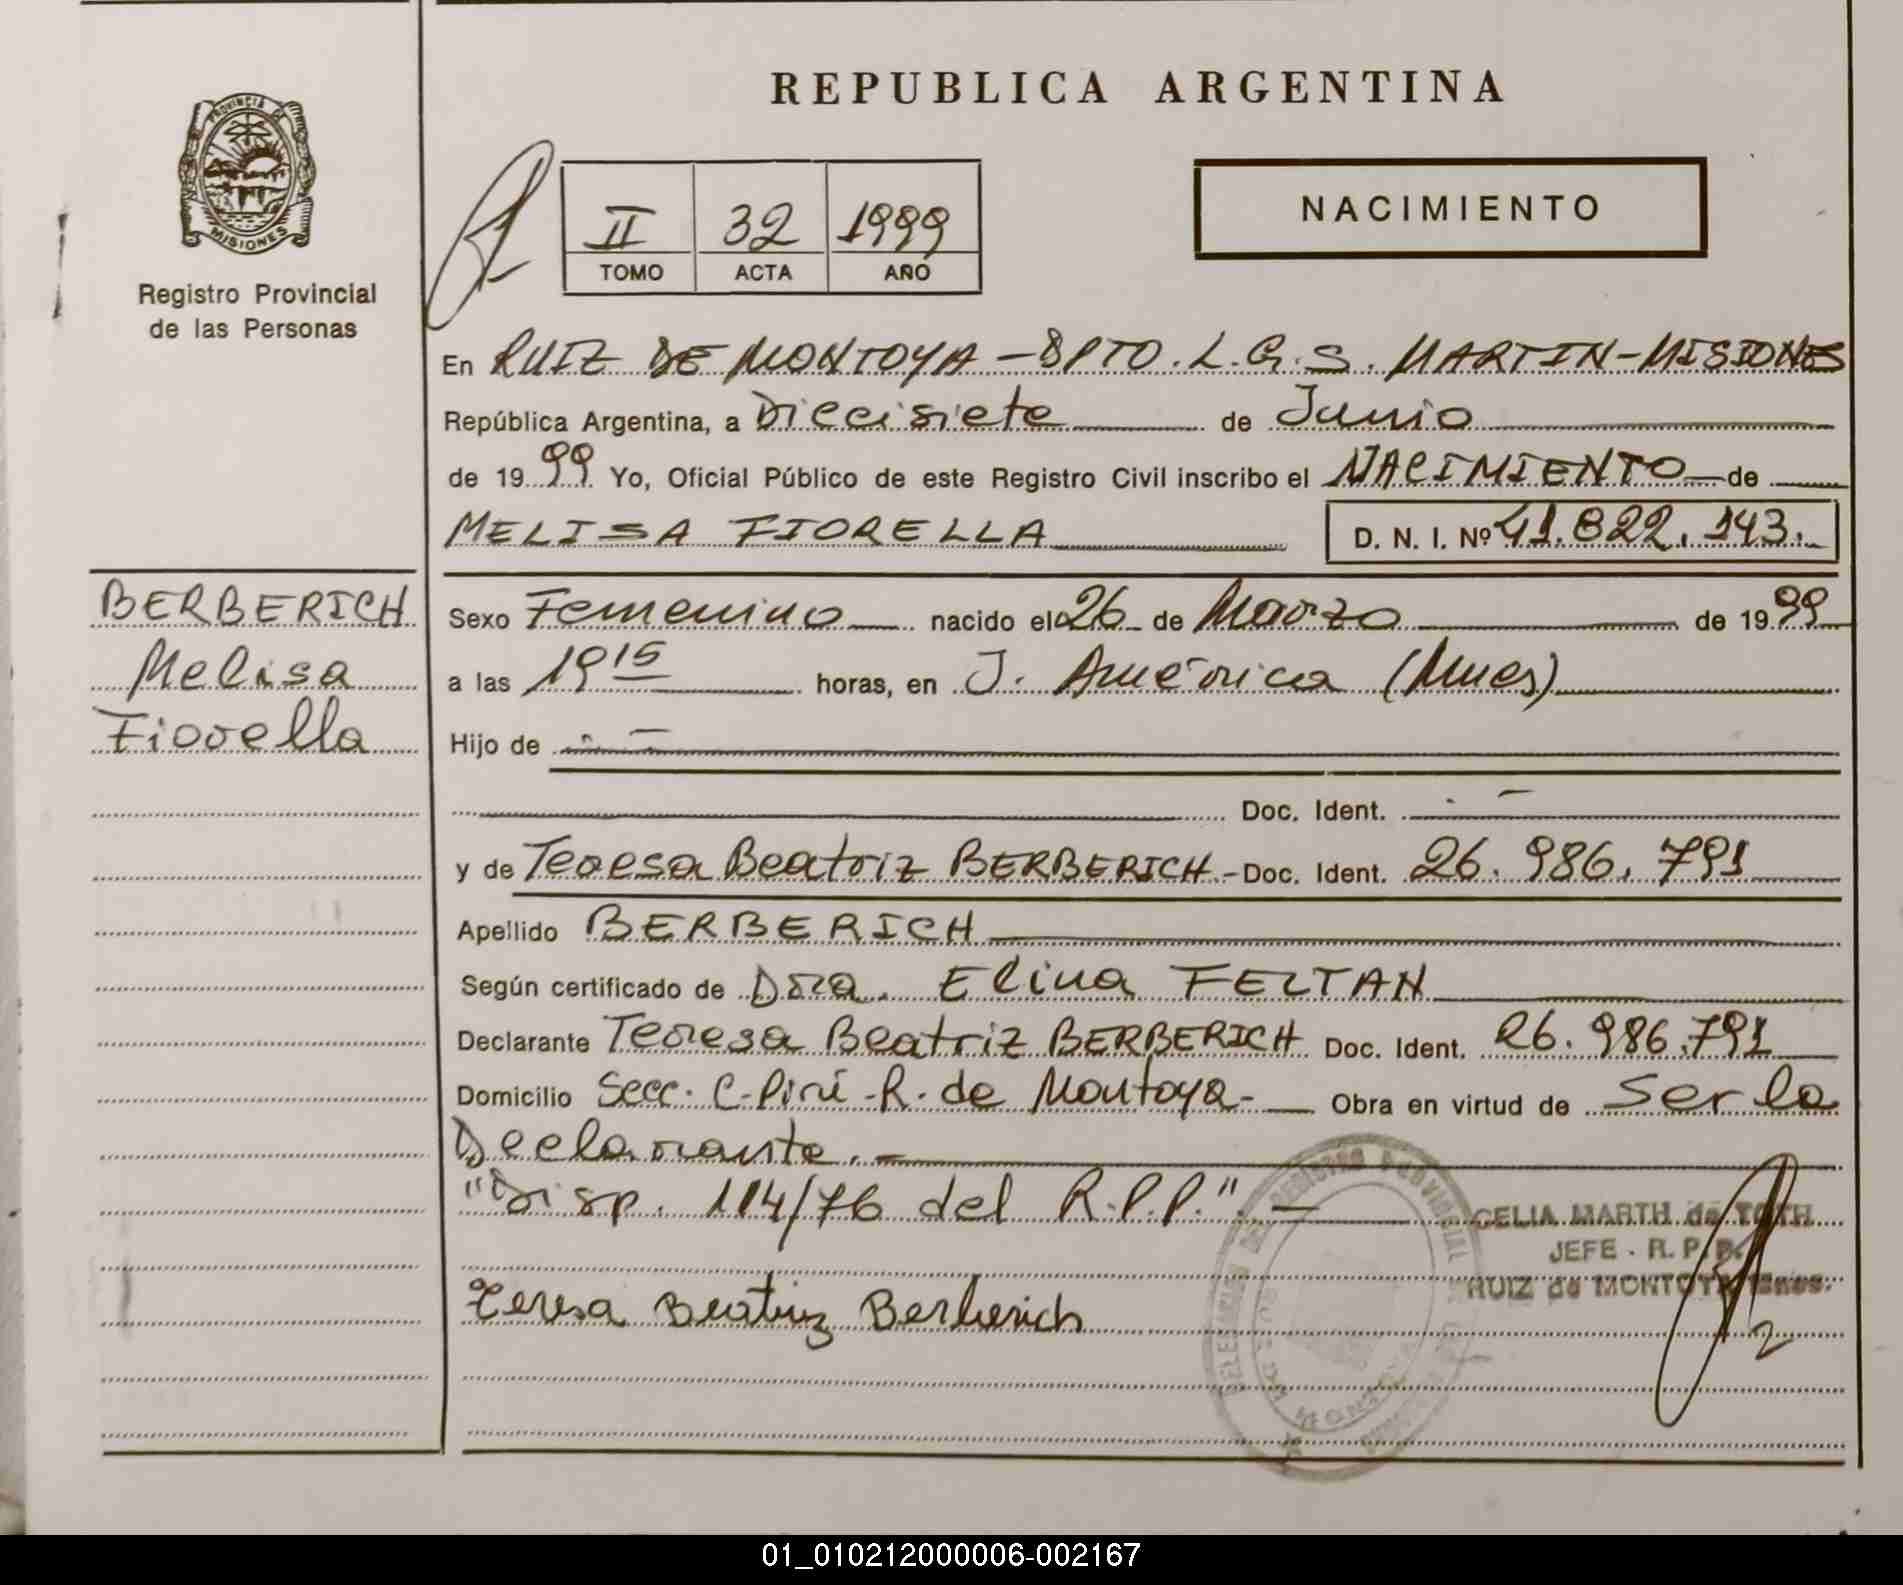 REPUBLICA ARGENTINA
PROVINCIA DE
MISIONES
Registro Provincial
de las Personas
II 32 1999
TOMO ACTA AÑO
NACIMIENTO
En RUIZ DE MONTOYA - DPTO. L.G.S. MARTIN - MISIONES
República Argentina, a Diecisiete de Junio
de 1999 Yo, Oficial Público de este Registro Civil inscribo el NACIMIENTO de
MELISA FIORELLA D. N. I. Nº 41.822.143.
BERBERICH
Melisa
Fiorella
Sexo Femenino nacido el 26 de Marzo de 1999
a las 19 15 horas, en J. América (Mnes)
Hijo de . -
Doc. Ident. . -
y de Teresa Beatriz BERBERICH.- Doc. Ident. 26.986.791
Apellido BERBERICH
Según certificado de Dra. Elina FELTAN
Declarante Teresa Beatriz BERBERICH Doc. Ident. 26.986.791
Domicilio Secc. C-Pirí - R. de Montoya - Obra en virtud de Ser la
Declarante. -
"Disp. 114/76 del R.P.P." -
CELIA MARTH de TOTH
JEFE - R. P. P.
RUIZ de MONTOYA Mnes.
Teresa Beatriz Berberich
01_010212000006-002167